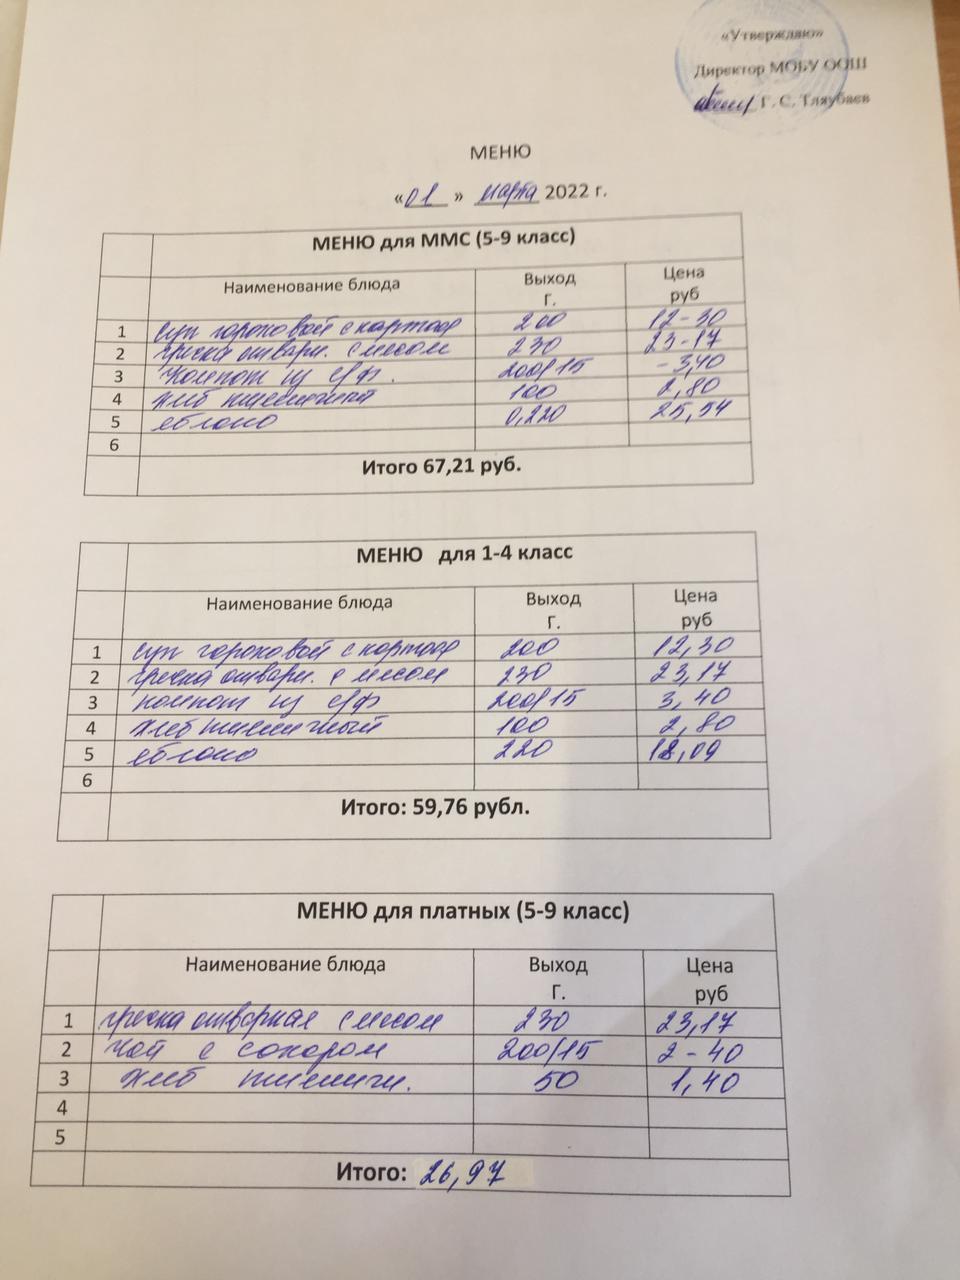 «Утверждаю»
Директор МОБУ ООШ
Г. С. Тляубаев
МЕНЮ
«01» марта 2022 г.
МЕНЮ для ММС (5-9 класс)
Наименование блюда Выход Г. Цена руб
1 суп гороховой с картоф 200 12-30
2 гречка отварн. с мясом 230 23-17
3 Компот из с/ф. 200/15 -3,40
4 хлеб пшеничный 100 2,80
5 яблоко 0,220 25,54
6
Итого 67,21 руб.
МЕНЮ для 1-4 класс
Наименование блюда Выход Г. Цена руб
1 суп гороховой с картоф 200 12,30
2 гречка отварн. с мясом 230 23,17
3 компот из с/ф 200/15 3,40
4 хлеб пшеничный 100 2,80
5 яблоко 220 18,09
6
Итого: 59,76 рубл.
МЕНЮ для платных (5-9 класс)
Наименование блюда Выход Г. Цена руб
1 гречка отварная с мясом 230 23,17
2 чай с сахаром 200/15 2-40
3 хлеб пшеничн. 50 1,40
4
5
Итого: 26,97